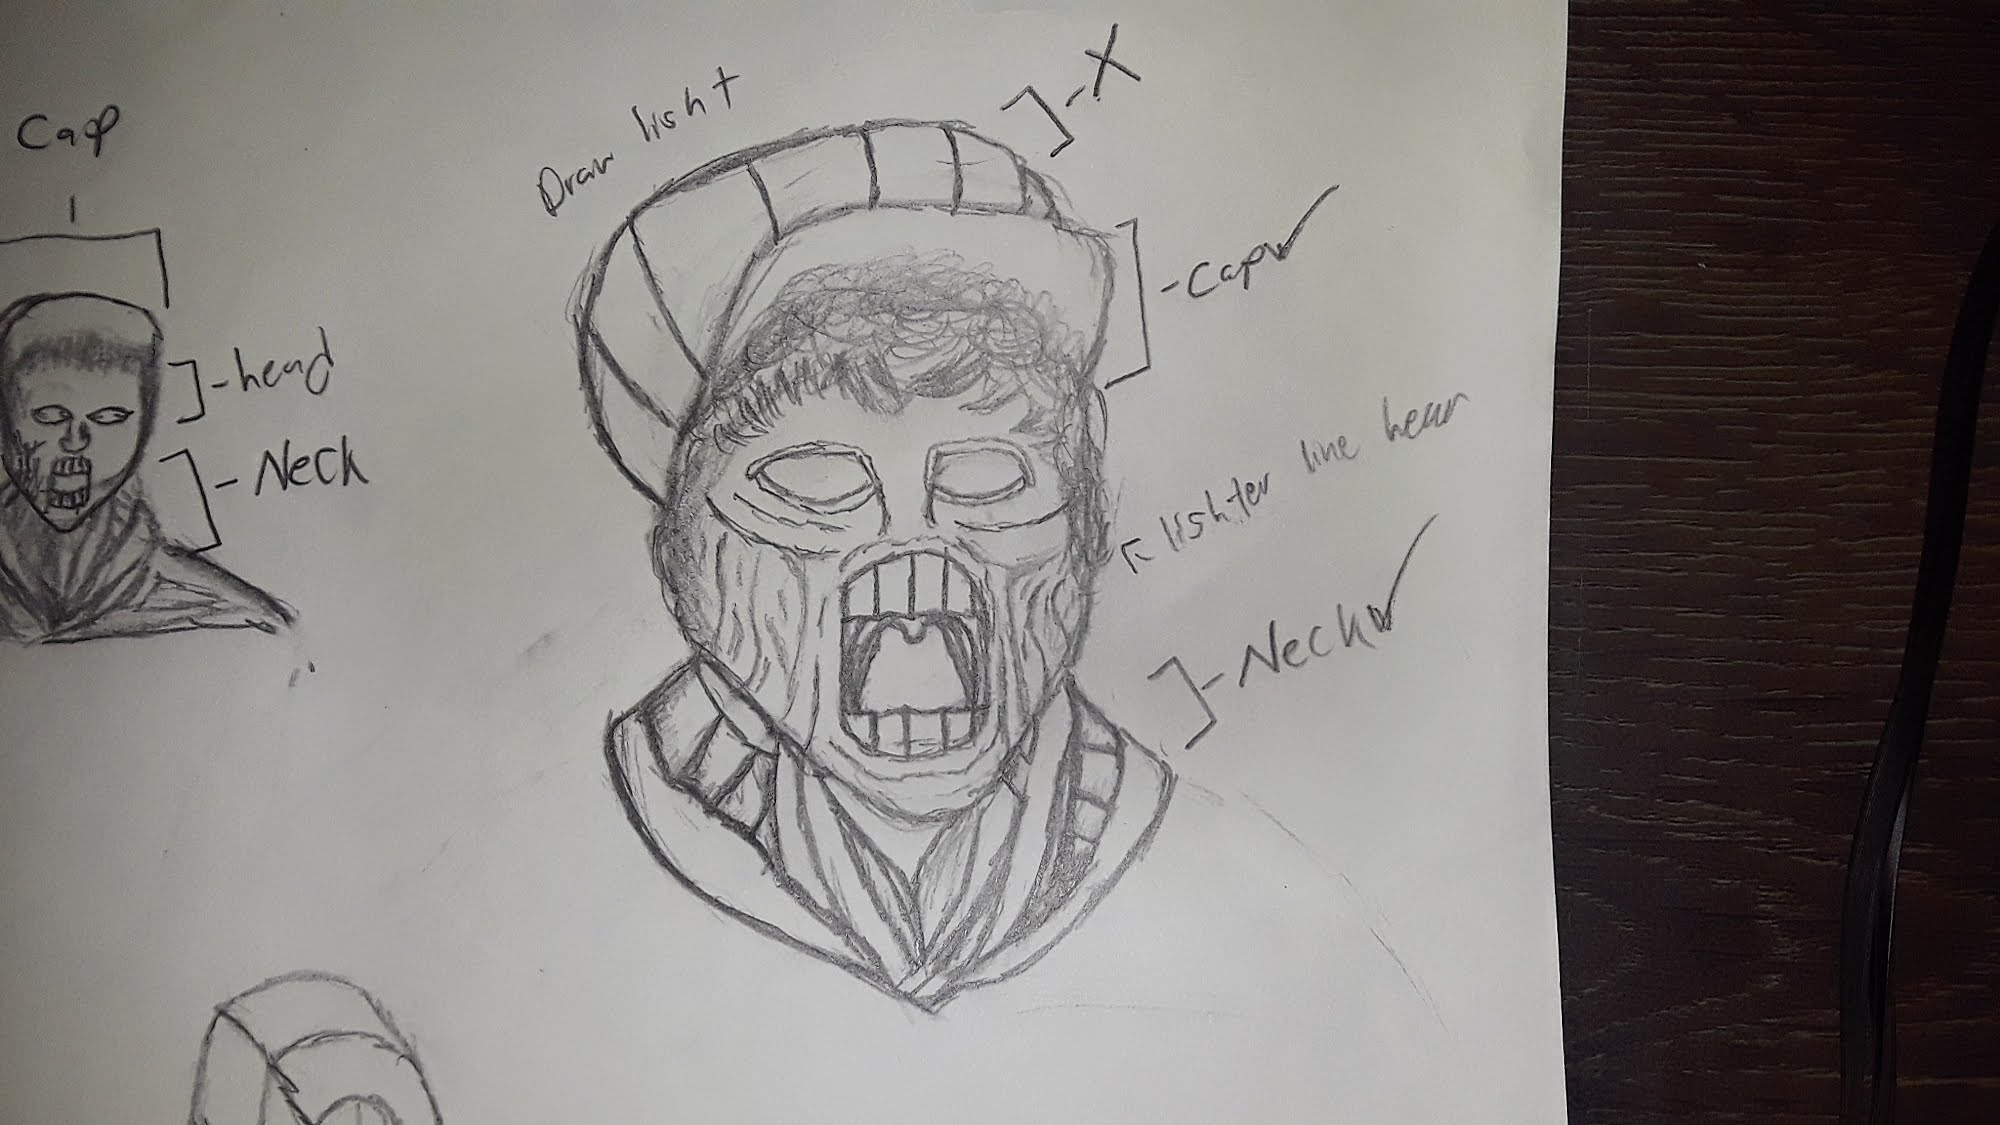 Cap
head
Neck
Draw light
X
Cap ✓
lighter line hear
Neck ✓